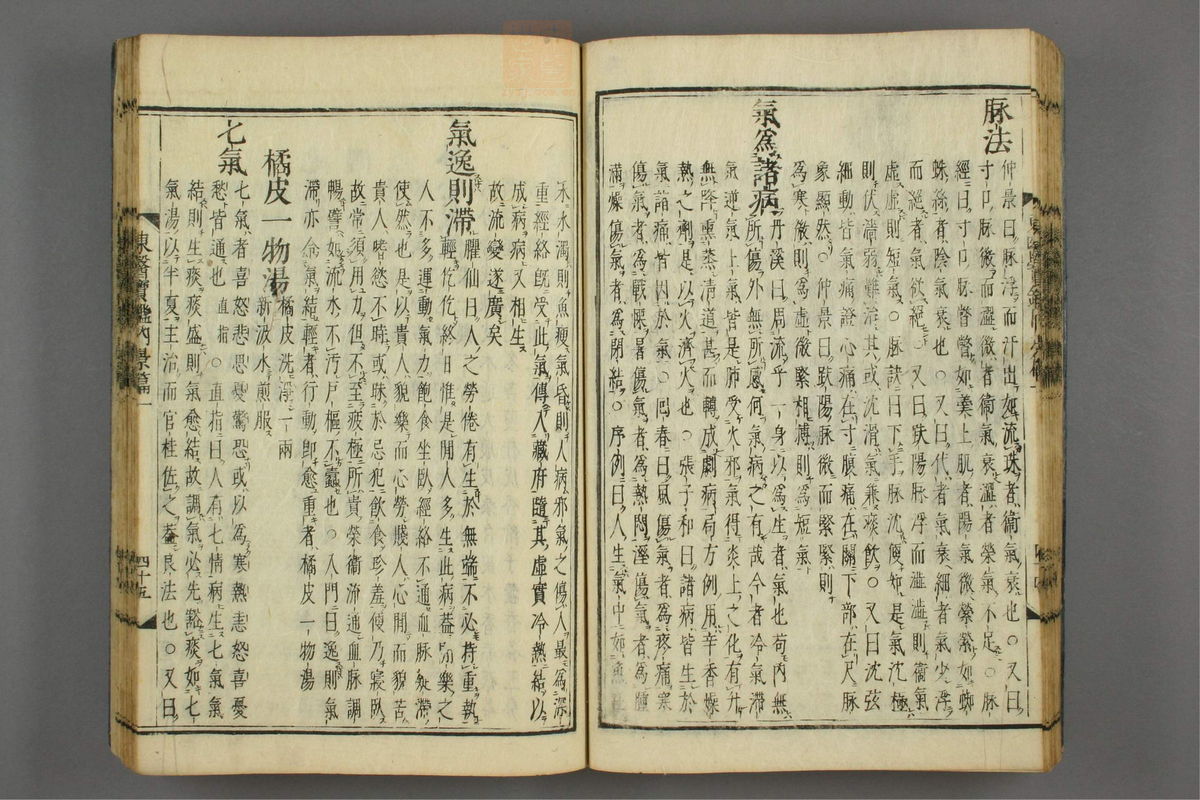 脉法
仲景曰脉浮而汗出如流珠者衛氣衰也○又曰
寸口脉微而澁微者衛氣衰澁者榮氣不足○脉
經曰寸口脉瞥瞥如羹上肌者陽氣微縈縈如蜘
蛛絲者陰氣衰也○又曰代者氣衰細者氣少浮
而絕者氣欲絕○又曰趺陽脉浮而澁澁則衛氣
虛虛則短氣○脉訣曰下手脉沈便知是氣沈極
則伏濇弱難治其或沈滑氣兼痰飮○又曰沈弦
細動皆氣痛證心痛在寸腹痛在關下部在尺脉
象顯然○仲景曰趺陽脉微而緊緊則
爲寒微則爲虛微緊相搏則爲短氣
氣爲諸病
丹溪曰周流乎一身以爲生者氣也苟內無
所傷外無所感何氣病之有哉今者冷氣滯
氣逆氣上氣皆是肺受火邪氣得炎上之化有升
無降熏蒸淸道甚而轉成劇病局方例用辛香燥
熱之劑是以火濟火也○張子和曰諸病皆生於
氣諸痛皆因於氣○回春曰風傷氣者爲疼痛寒
傷氣者爲戰慄暑傷氣者爲熱悶濕傷氣者爲腫
滿燥傷氣者爲閉結○序例曰人生氣中如魚在
水水濁則魚瘦氣昏則人病邪氣之傷人最爲深
重經絡旣受此氣傳入藏府隨其虛實冷熱結以
成病病又相生
故流變遂廣矣
氣逸則滯
臞仙曰人之勞倦有生於無端不必持重執
輕仡仡終日惟是閒人多生此病蓋閒樂之
人不多運動氣力飽食坐臥經絡不通血脉凝滯
使然也是以貴人貌樂而心勞賤人心閒而貌苦
貴人嗜慾不時或昧於忌犯飮食珍羞便乃寢臥
故常須用力但不至疲極所貴榮衛流通血脉調
暢譬如流水不汚戶樞不蠹也○入門曰逸則氣
滯亦令氣結輕者行動卽愈重者橘皮一物湯
橘皮一物湯
橘皮洗淨一兩
新汲水煎服
直指
七氣
七氣者喜怒悲思憂驚恐或以爲寒熱恚怒喜憂
愁皆通也直指○直指曰人有七情病生七氣氣
結則生痰痰盛則氣愈結故調氣必先豁痰如七
氣湯以半夏主治而官桂佐之蓋良法也○又曰
東醫寶鑑內景篇一
四十五